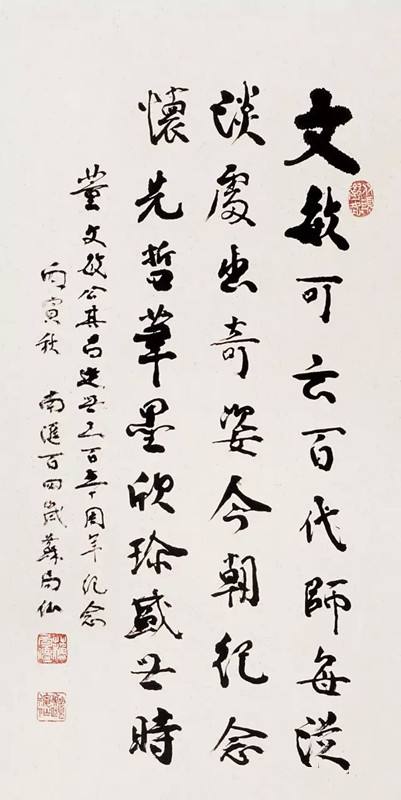 文敏可云百代師每從
淡處出奇姿今朝紀念
懷先哲筆墨欣珍盛世時
董文敏公其昌逝世三百五十周年紀念
丙寅秋 南滙百四歲蘇局仙